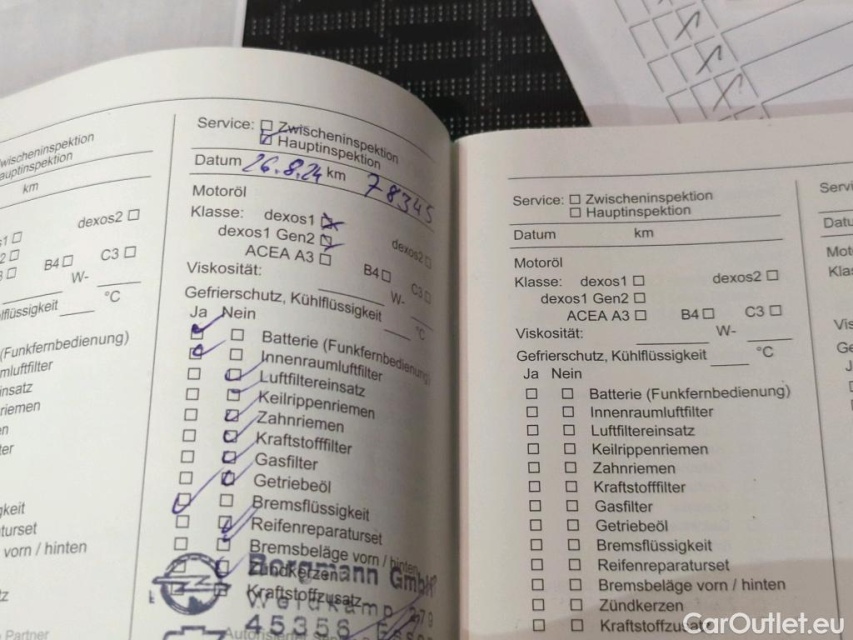 wischeninspektion
auptinspektion
km
dexos2
B4 C3
W-
lflüssigkeit °C
(Funkfernbedienung)
mluftfilter
insatz
riemen
gkeit
turset
vorn / hinten
Partner
Service: Zwischeninspektion
Hauptinspektion
Datum 26.8.24 km 78345
Motoröl
Klasse: dexos1 dexos2
dexos1 Gen2
ACEA A3 B4 C3
Viskosität: W-
Gefrierschutz, Kühlflüssigkeit °C
Ja Nein
Batterie (Funkfernbedienung)
Innenraumluftfilter
Luftfiltereinsatz
Keilrippenriemen
Zahnriemen
Kraftstofffilter
Gasfilter
Getriebeöl
Bremsflüssigkeit
Reifenreparaturset
Bremsbeläge vorn / hinten
Zündkerzen
Kraftstoffzusatz
Borgmann GmbH
45356 Essen
Service: Zwischeninspektion
Hauptinspektion
Datum km
Motoröl
Klasse: dexos1 dexos2
dexos1 Gen2
ACEA A3 B4 C3
Viskosität: W-
Gefrierschutz, Kühlflüssigkeit °C
Ja Nein
Batterie (Funkfernbedienung)
Innenraumluftfilter
Luftfiltereinsatz
Keilrippenriemen
Zahnriemen
Kraftstofffilter
Gasfilter
Getriebeöl
Bremsflüssigkeit
Reifenreparaturset
Bremsbeläge vorn / hinten
Zündkerzen
Kraftstoffzusatz
Servi
Datu
Moto
Klas
Vis
Ge
CarOutlet.eu